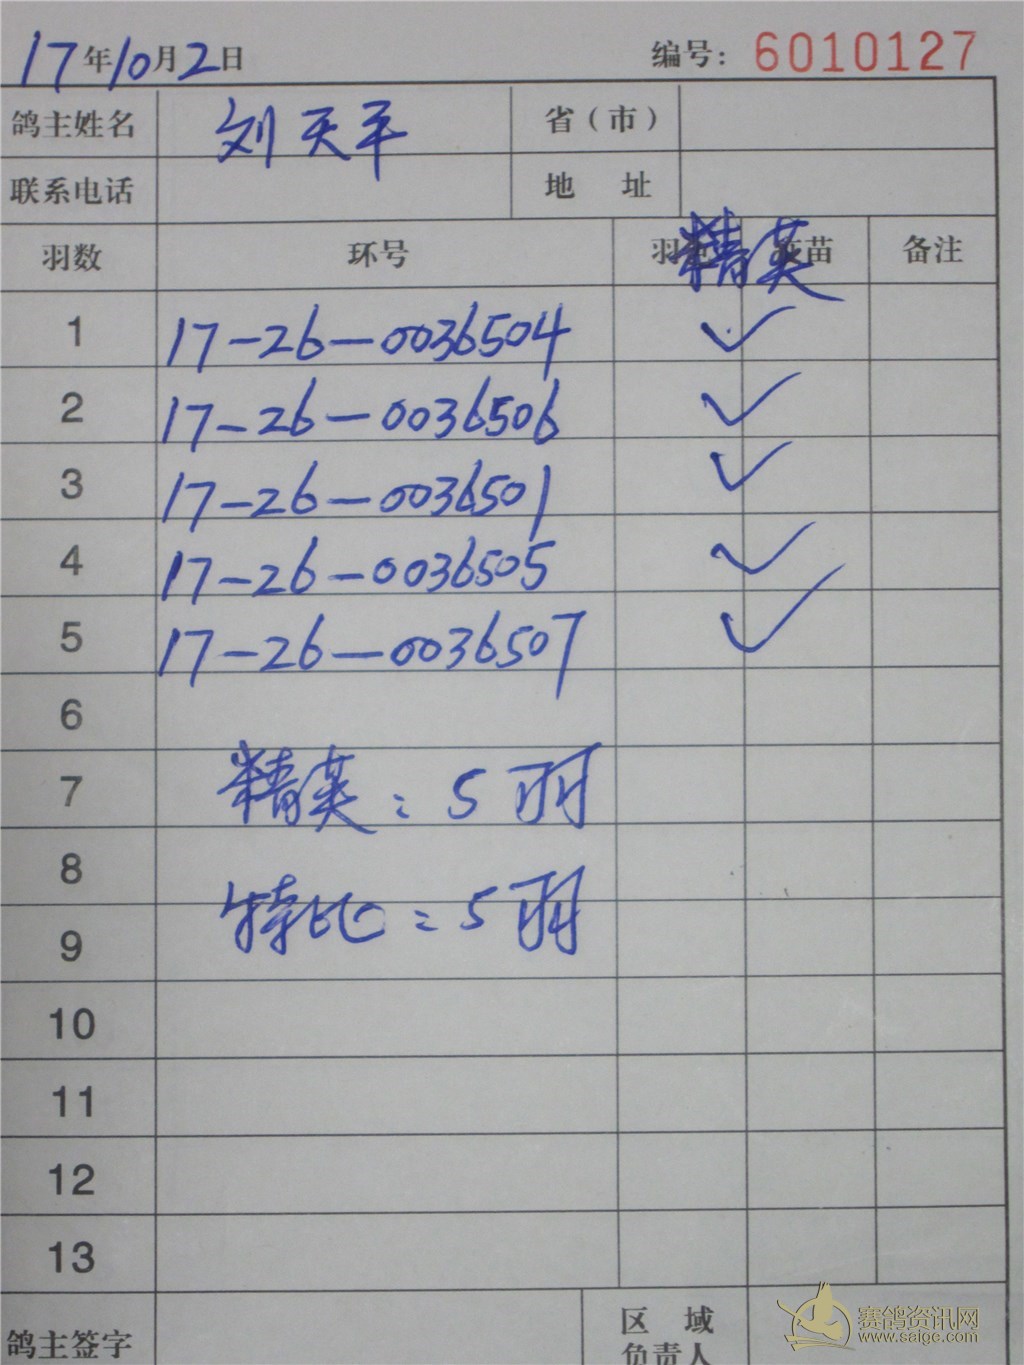 17年10月2日 编号: 6010127
鸽主姓名 刘天平 省(市)
联系电话 地 址
羽数 环号 羽色 精英 疫苗 备注
1 17-26-0036504 ✓
2 17-26-0036506 ✓
3 17-26-0036501 ✓
4 17-26-0036505 ✓
5 17-26-0036507 ✓
6
7 精英: 5羽
8
9 特比: 5羽
10
11
12
13
鸽主签字 区 域
负责人
赛鸽资讯网
www.saige.com